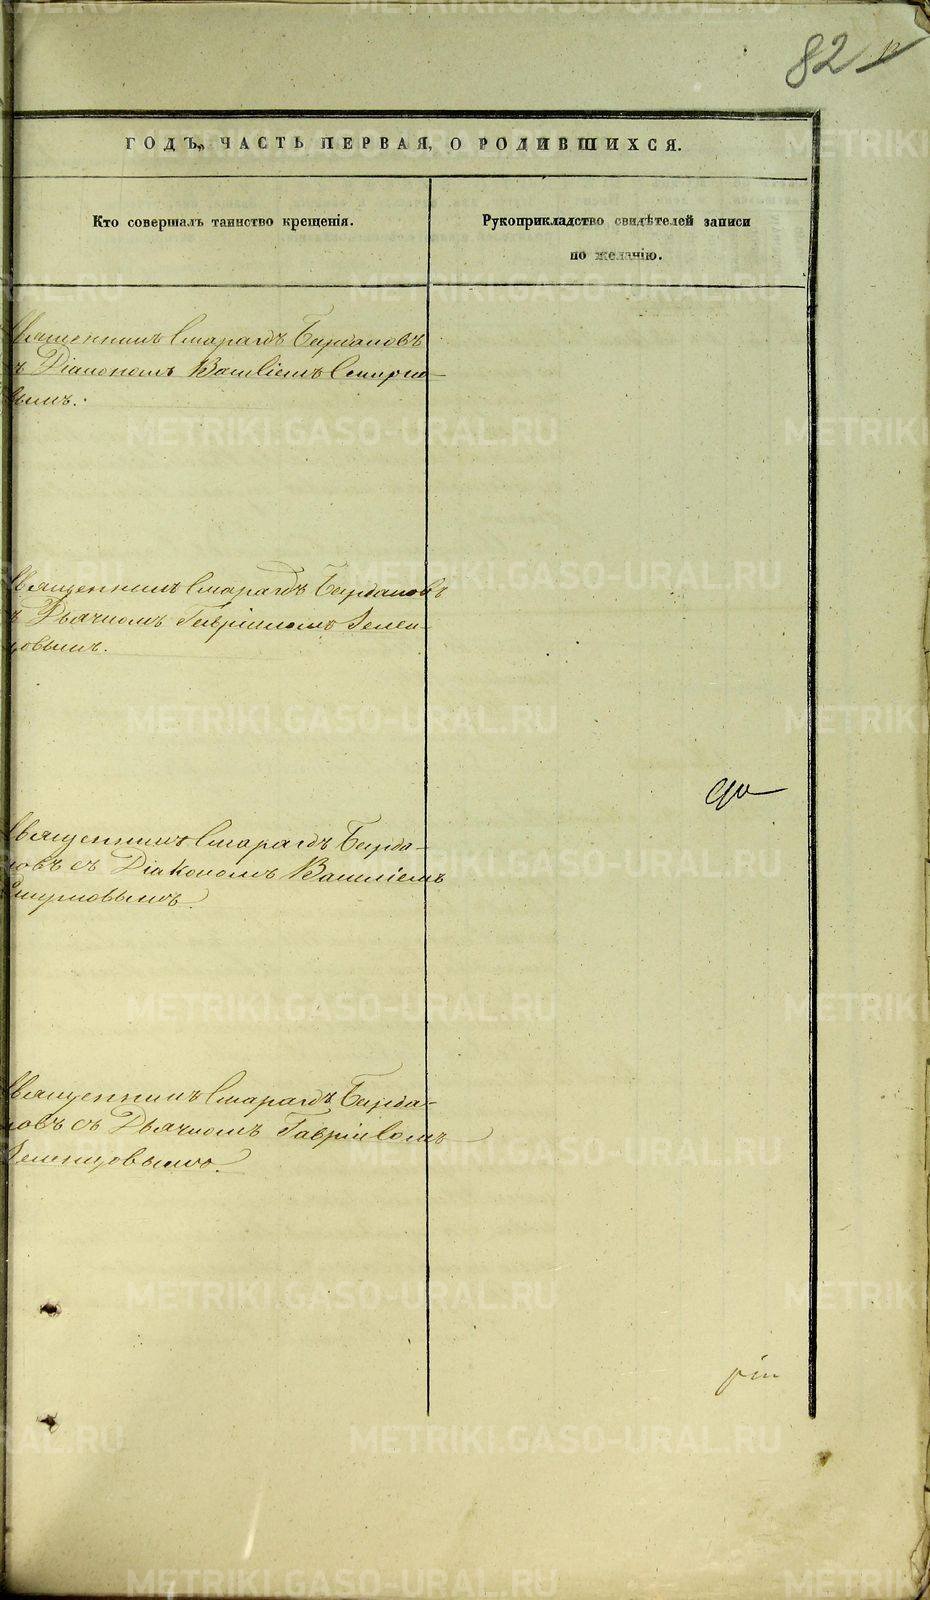 82
ГОДЪ, ЧАСТЬ ПЕРВАЯ, О РОДИВШИХСЯ.
Кто совершалъ таинство крещенія.
Рукоприкладство свидѣтелей записи
по желанію.
Священникъ Смарагдъ Бирдановъ
съ Діакономъ Василіемъ Смирно-
вымъ.
Священникъ Смарагдъ Бирдановъ
съ Дьячкомъ Гавріиломъ Зелен-
цовымъ.
Священникъ Смарагдъ Бирда-
новъ съ Діакономъ Василіемъ
Смирновымъ.
Священникъ Смарагдъ Бирда-
новъ съ Дьячкомъ Гавріиломъ
Зеленцовымъ.
METRIKI.GASO-URAL.RU